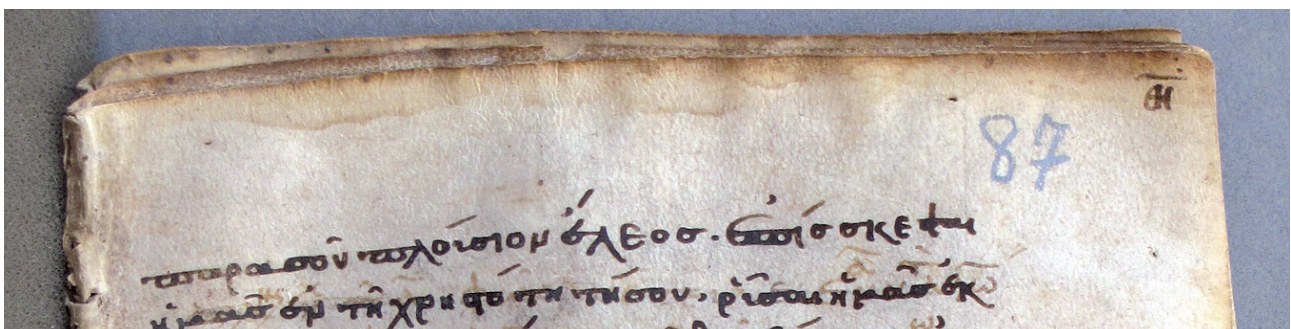 87
παρασοῦ πλοίσιον ἔλεος. ἐπίσκεψαι
ἡμᾶς ἐν τῆ χρηστότητι τήσου, ρῖσαι ἡμᾶς ἐκ